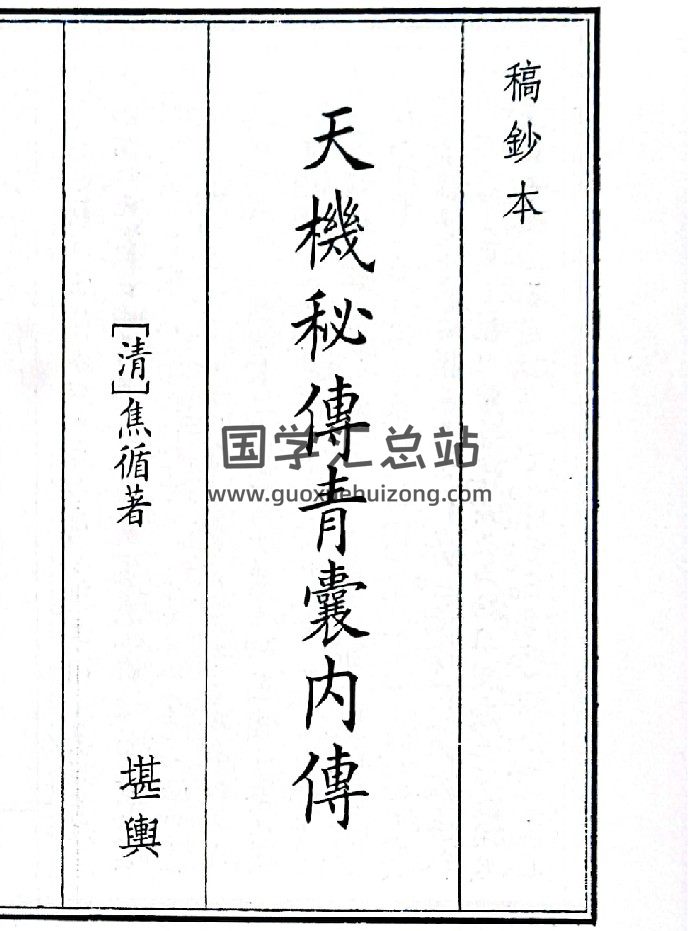 稿鈔本
天機秘傳青囊内傳
[清]焦循著
堪輿
国学汇总站
www.guoxuehuizong.com